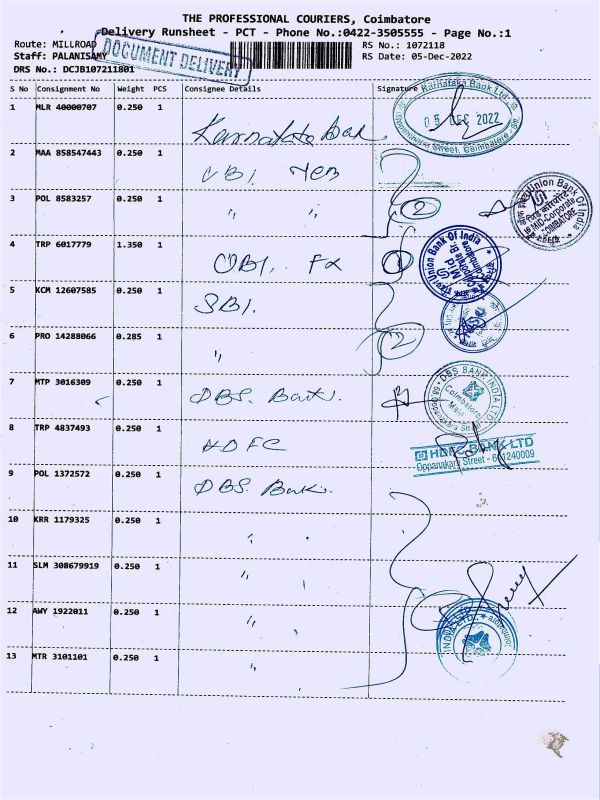 THE PROFESSIONAL COURIERS, Coimbatore
Delivery Runsheet - PCT - Phone No.:0422-3505555 - Page No.:1
Route: MILLROAD
RS No.: 1072118
Staff: PALANISAMY
RS Date: 05-Dec-2022
DOCUMENT DELIVERY
DRS No.: DCJB107211801
S No Consignment No Weight PCS Consignee Details Signature
1 MLR 40000707 0.250 1 Karnataka Bank
Karnataka Bank Ltd
05 DEC 2022
Oppanakara Street, Coimbatore
2 MAA 858547443 0.250 1 UBI
3 POL 8583257 0.250 1 " " 2
Union Bank Of India
MID-Corporate
COIMBATORE
4 TRP 6017779 1.350 1 UBI. Fx 1
Union Bank Of India
Mid
Corporate Br.
Coimbatore
5 KCM 12607585 0.250 1 SBI.
6 PRO 14288066 0.285 1 " 2
7 MTP 3016309 0.250 1 DBS. Bank.
DBS BANK INDIA LTD
Coimbatore
Main
8 TRP 4837493 0.250 1 HDFC
HDFC BANK LTD
Oppanakara Street - 641240009
9 POL 1372572 0.250 1 DBS. Bank.
10 KRR 1179325 0.250 1 "
11 SLM 308679919 0.250 1 "
12 AWY 1922011 0.250 1 "
INDIA LTD.
13 MTR 3101101 0.250 1 "